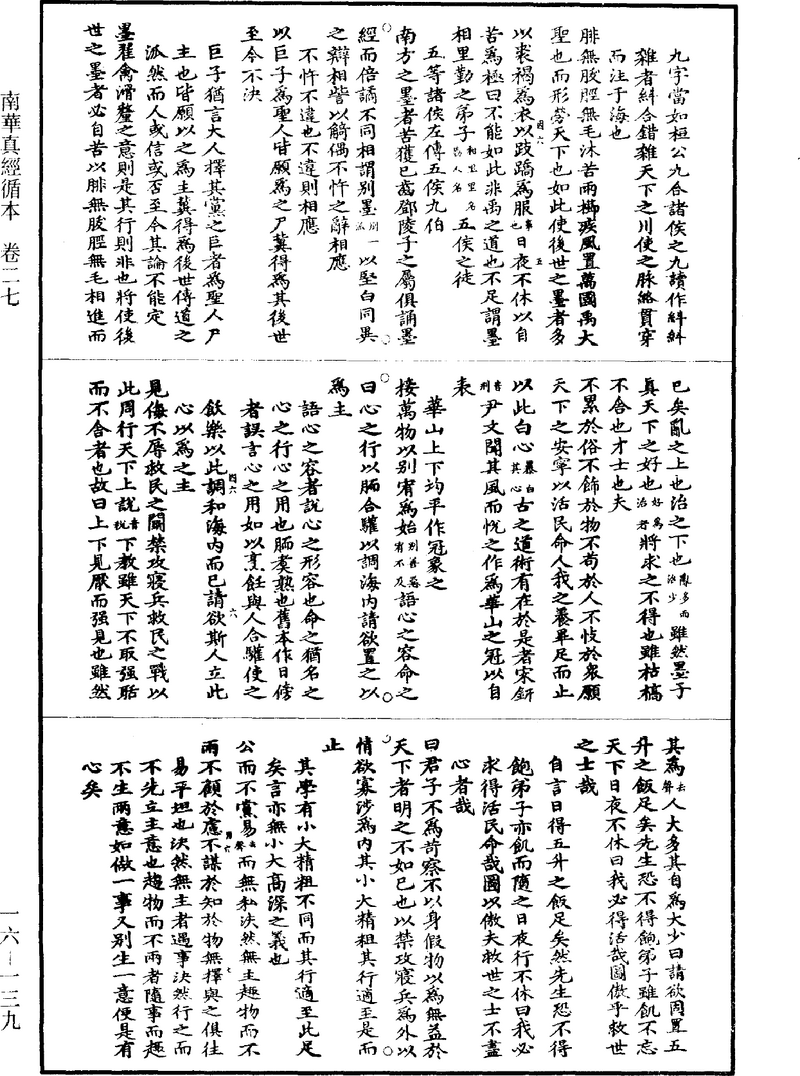 南華真經循本　卷二七
九字當如桓公九合諸侯之九讀作糾糾
雜者糾合錯雜天下之川使之脉絡貫穿
而注于海也
腓無胈脛無毛沐苦雨櫛疾風置萬國禹大
聖也而形勞天下也如此使後世之墨者多
以裘褐為衣以跂蹻為服也日夜不休以自
苦為極曰不能如此非禹之道也不足謂墨
相里勤之弟子相里里名勤人名五侯之徒
五等諸侯左傳五侯九伯
南方之墨者苦獲已齒鄧陵子之屬俱誦墨
經而倍譎不同相謂別墨以堅白同異
之辯相訾以觭偶不忤之辭相應
不忤不違也不違則相應
以巨子為聖人皆願為之尸冀得為其後世
至今不決
巨子猶言大人擇其黨之巨者為聖人尸
主也皆願以之為主冀得為後世傳道之
派然而人或信或否至今其論不能定
墨翟禽滑釐之意則是其行則非也將使後
世之墨者必自苦以腓無胈脛無毛相進而
已矣亂之上也治之下也亂多而治少雖然墨子
真天下之好也好為治者將求之不得也雖枯槁
不舍也才士也夫
不累於俗不飾於物不苟於人不忮於衆願
天下之安寧以活民命人我之養畢足而止
以此白心暴白其心古之道術有在於是者宋鈃
音刑尹文聞其風而悅之作為華山之冠以自
表
華山上下均平作冠象之
接萬物以別宥為始別善惡宥不及語心之容命之
曰心之行以胹合驩以調海內請欲置之以
為主
語心之容者說心之形容也命之猶名之
心之行心之用也胹耎熟也舊本作日傍
者誤言心之用如以烹飪與人合驩使之
飲樂以此調和海內而已請欲斯人立此
心以為之主
見侮不辱救民之鬬禁攻寢兵救民之戰以
此周行天下上說音稅下教雖天下不取強聒
而不舍者也故曰上下見厭而强見也雖然
其為去聲人大多其自為大少曰請欲固置五
升之飯足矣先生恐不得飽弟子雖飢不忘
天下日夜不休曰我必得活哉圖傲乎救世
之士哉
自言日得五升之飯足矣然先生恐不得
飽弟子亦飢而隨之日夜行不休曰我必
求得活民命哉圖以傲夫救世之士不盡
心者哉
曰君子不為苛察不以身假物以為無益於
天下者明之不如已也以禁攻寢兵為外以
情欲寡淺為內其小大精粗其行適至是而
止
其學有小大精粗不同而其行適至此足
矣言亦無小大高深之義也
公而不黨易去聲而無私決然無主趣物而不
兩不顧於慮不謀於知於物無擇與之俱往
易平坦也決然無主者遇事決然行之而
不先立主意也趨物而不兩者隨事而趣
不生兩意如做一事又别生一意便是有
心矣
一六—一三九